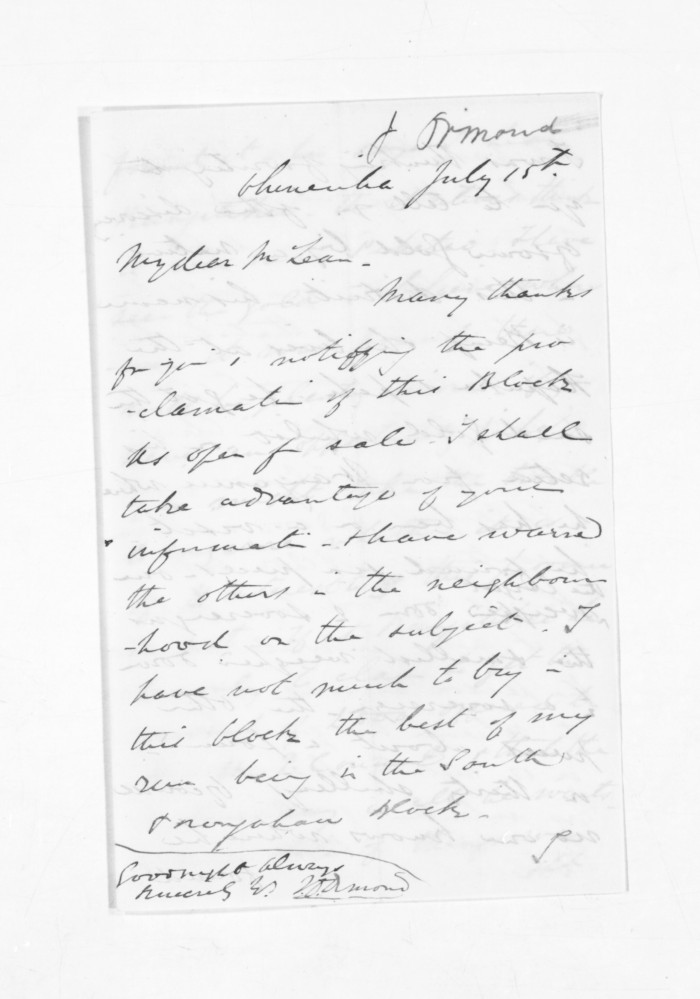 J Ormond
July 15th.
My dear McLean -
Many thanks
for your notifying the pro
-clamation of this Block
as open for sale I shall
take advantage of your
information - I have warned
the others in the neighbour
-hood on the subject. I
have not much to buy in
this block the best of my
run being in the South
Block -
Goodnight always
sincerely Yrs J D Ormond